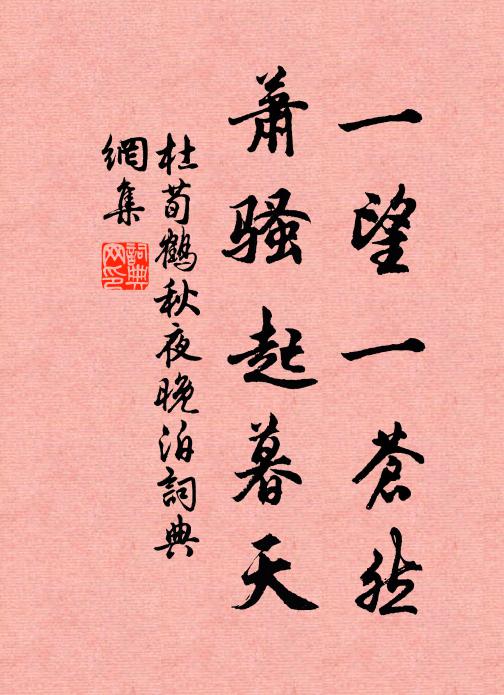 一望一蒼然
蕭骚起暮天
杜荀鶴秋夜晚泊詞典
網集
詞典
网印